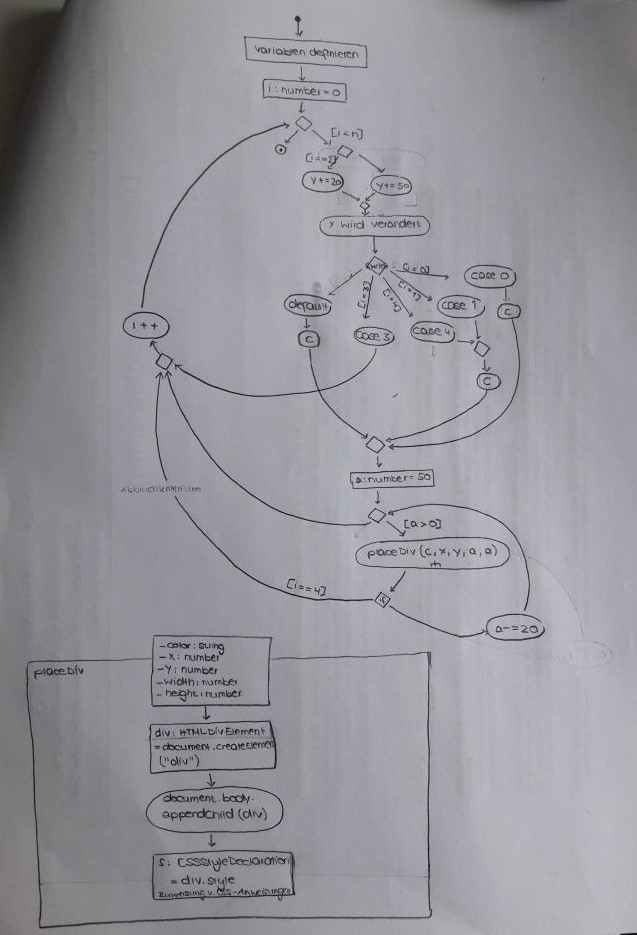 variablen definieren
i: number = 0
[i<n]
y+=20
y+=50
x wird verändert
switch
[i=0]
case 0
[i=1]
default
[i=3]
[i=4]
case 1
c
i++
c
case 3
case 4
c
a: number = 50
[a>0]
placeDiv (c, x, y, a, a)
[i==4]
if
a-=20
placeDiv
- color: string
- x: number
- y: number
- width: number
- height: number
div: HTMLDivElement
= document.createElemen
("div")
document.body.
appendChild (div)
s: CSSStyleDeclaration
= div.style
Zuweisung v. CSS-Anweisungen